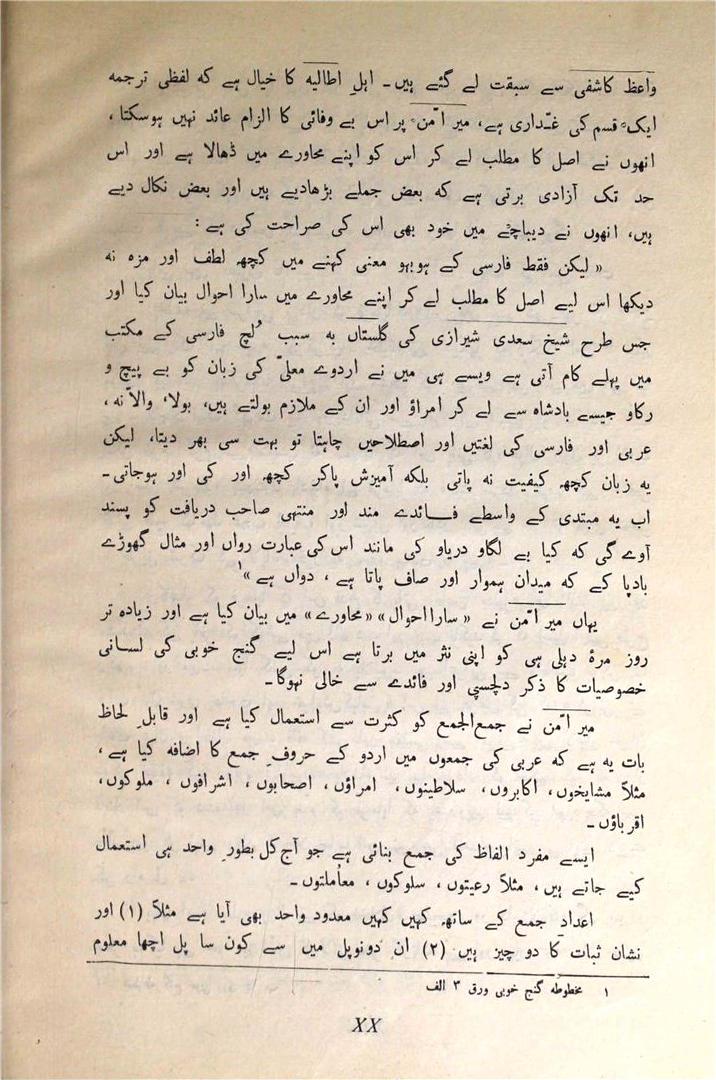 واعظ کاشفی سے سبقت لے گئے ہیں۔ اہلِ اطالیہ کا خیال ہے کہ لفظی ترجمہ
ایک قسم کی غدّاری ہے، میر امّن پر اس بے وفائی کا الزام عائد نہیں ہوسکتا،
انھوں نے اصل کا مطلب لے کر اس کو اپنے محاورے میں ڈھالا ہے اور اس
حد تک آزادی برتی ہے کہ بعض جملے بڑھادیے ہیں اور بعض نکال دیے
ہیں، انھوں نے دیباچے میں خود بھی اس کی صراحت کی ہے :
« لیکن فقط فارسی کے ہوبہو معنی کہنے میں کچھ لطف اور مزہ نہ
دیکھا اس لیے اصل کا مطلب لے کر اپنے محاورے میں سارا احوال بیان کیا اور
جس طرح شیخ سعدی شیرازی کی گلستاں بہ سبب لُچ فارسی کے مکتب
میں پہلے کام آتی ہے ویسے ہی میں نے اردوے معلیّٰ کی زبان کو بے پیچ و
رکاو جیسے بادشاہ سے لے کر امراؤ اور ان کے ملازم بولتے ہیں، بولا، والّا نہ،
عربی اور فارسی کی لغتیں اور اصطلاحیں چاہتا تو بہت سی بھر دیتا، لیکن
یہ زبان کچھ کیفیت نہ پاتی بلکہ آمیزش پاکر کچھ اور کی اور ہوجاتی۔
اب یہ مبتدی کے واسطے فائدے مند اور منتہی صاحب دریافت کو پسند
آوے گی کہ کیا بے لگاو دریاو کی مانند اس کی عبارت رواں اور مثال گھوڑے
بادپا کے کہ میدان ہموار اور صاف پاتا ہے، دواں ہے »۱
یہاں میر امّن نے « سارا احوال» «محاورے» میں بیان کیا ہے اور زیادہ تر
روز مرۂ دہلی ہی کو اپنی نثر میں برتا ہے اس لیے گنج خوبی کی لسانی
خصوصیات کا ذکر دلچسپی اور فائدے سے خالی نہوگا۔
میر امّن نے جمع الجمع کو کثرت سے استعمال کیا ہے اور قابلِ لحاظ
بات یہ ہے کہ عربی کی جمعوں میں اردو کے حروفِ جمع کا اضافہ کیا ہے،
مثلاً مشایخوں، اکابروں، سلاطینوں، امراؤں، اصحابوں، اشرافوں، ملوکوں،
اقرباؤں۔
ایسے مفرد الفاظ کی جمع بنائی ہے جو آج کل بطورِ واحد ہی استعمال
کیے جاتے ہیں، مثلاً رعیتوں، سلوکوں، معاملتوں۔
اعدادِ جمع کے ساتھ کہیں کہیں معدود واحد بھی آیا ہے مثلاً (۱) اور
نشان ثبات کا دو چیز ہیں (۲) ان دونوپل میں سے کون سا پل اچھا معلوم
۱ مخطوطہ گنج خوبی ورق ۳ الف
XX